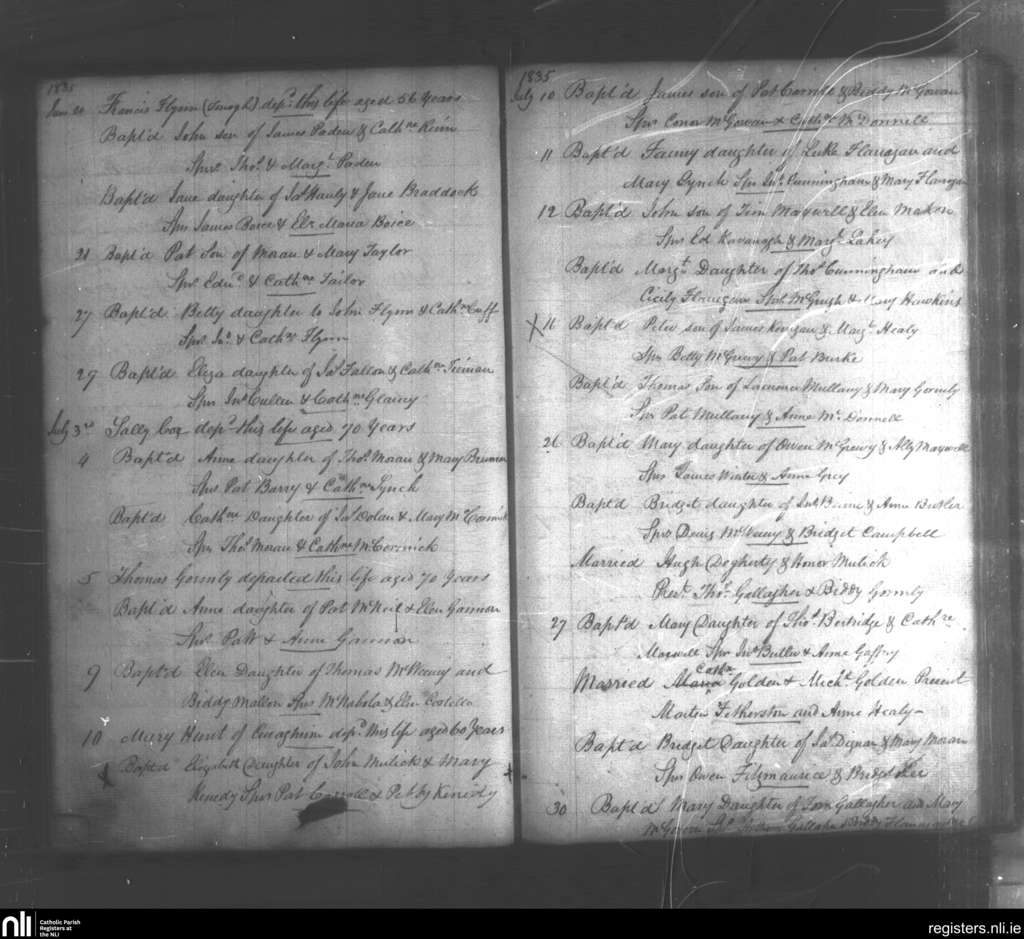 1835
Jun 20 Francis Flynn depd. this life aged 56 Years
Bapt'd John son of James Paden & Cathne
Sprs. Thos. & Margt. Paden
Bapt'd Jane daughter of Jas Hanly & Jane Braddock
Sprs James Boice & Elr Maria Boice
21 Bapt'd Pat Son of Moran & Mary Taylor
Sprs. Edwd. & Cathne Tailor
27 Bapt'd Betty daughter to John Flynn & Cathn. Cuff
Sprs. Jno. & Cathne Flynn
29 Bapt'd Eliza daughter of Jas Fallon & Cathne Tiernan
Sprs Jno Cullen & Cathne Glancy
July 3rd Sally Cox depd. this life aged 70 Years
4 Bapt'd Anne daughter of Thos. Moran & Mary Brennan
Sprs Pat Barry & Cathne Lynch
Bapt'd Cathne Daughter of Jas Dolan & Mary McCormick
Sprs Thos Moran & Cathne McCormick
5 Thomas Gormly departed this life aged 70 Years
Bapt'd Anne daughter of Pat McNeil & Elen Gannon
Sprs. Patt & Anne Gannon
9 Bapt'd Elen Daughter of Thomas McWeeny and
Biddy Mallon Sprs McNabola & Elen Costello
10 Mary Hunt of depd. this life aged 60 Years
Bapt'd Elizabeth Daughter of John Mulick & Mary
Kenedy Sprs Pat Carroll & Pebby Kenedy
1835
July 10 Bapt'd James son of Pat & Biddy McGowan
Sprs Conor McGowan & Cathne McDonnell
11 Bapt'd Fanny daughter of Luke Flanagan and
Mary Lynch Sprs Jno. Cunningham & Mary Flanagan
12 Bapt'd John son of Tim Maxwell & Elen Mahon
Sprs Ed Kavanagh & Margt. Lahey
Bapt'd Margt. Daughter of Thos Cunningham and
Cicily Flanagan McGrugh & Mary Hawkins
X 16 Bapt'd Peter son of James Kerrigan & Margt. Healy
Sprs Betty McGreevy & Pat Burke
Bapt'd Thomas Son of Laurence Mullany & Mary Gormly
Sprs Pat Mullany & Anne McDonnell
26 Bapt'd Mary daughter of Owen McGreevy & Maxwell
Sprs James Winter & Anne Grey
Bapt'd Bridget daughter of Jno Beirne & Anne Butler
Sprs Denis McWeeny & Bridget Campbell
Married Hugh Dogherty & Honor Mulick
Prest. Thos. Gallagher & Biddy Gormly
27 Bapt'd Mary Daughter of Thos Bertridge & Cathne
Maxwell Sprs Jno Butler & Anne Gaffney
Cathe
Married Maria Golden & Michl. Golden Present
Martin Fetherston and Anne Healy
Bapt'd Bridget Daughter of Jas Dignan & Mary Moran
Sprs Owen Fitzmaurice & Bridget Lee
30 Bapt'd Mary Daughter of Tom Gallagher and Mary
McGovern Gallagher & Biddy Flannagan
nli Catholic Parish
Registers at
the NLI
registers.nli.ie